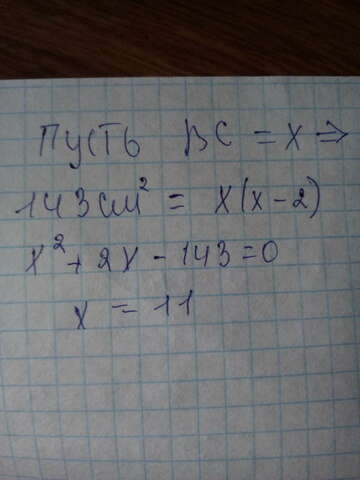 Пусть BC = x ⇒
143 см² = x(x-2)
x² + 2x - 143 = 0
x = 11